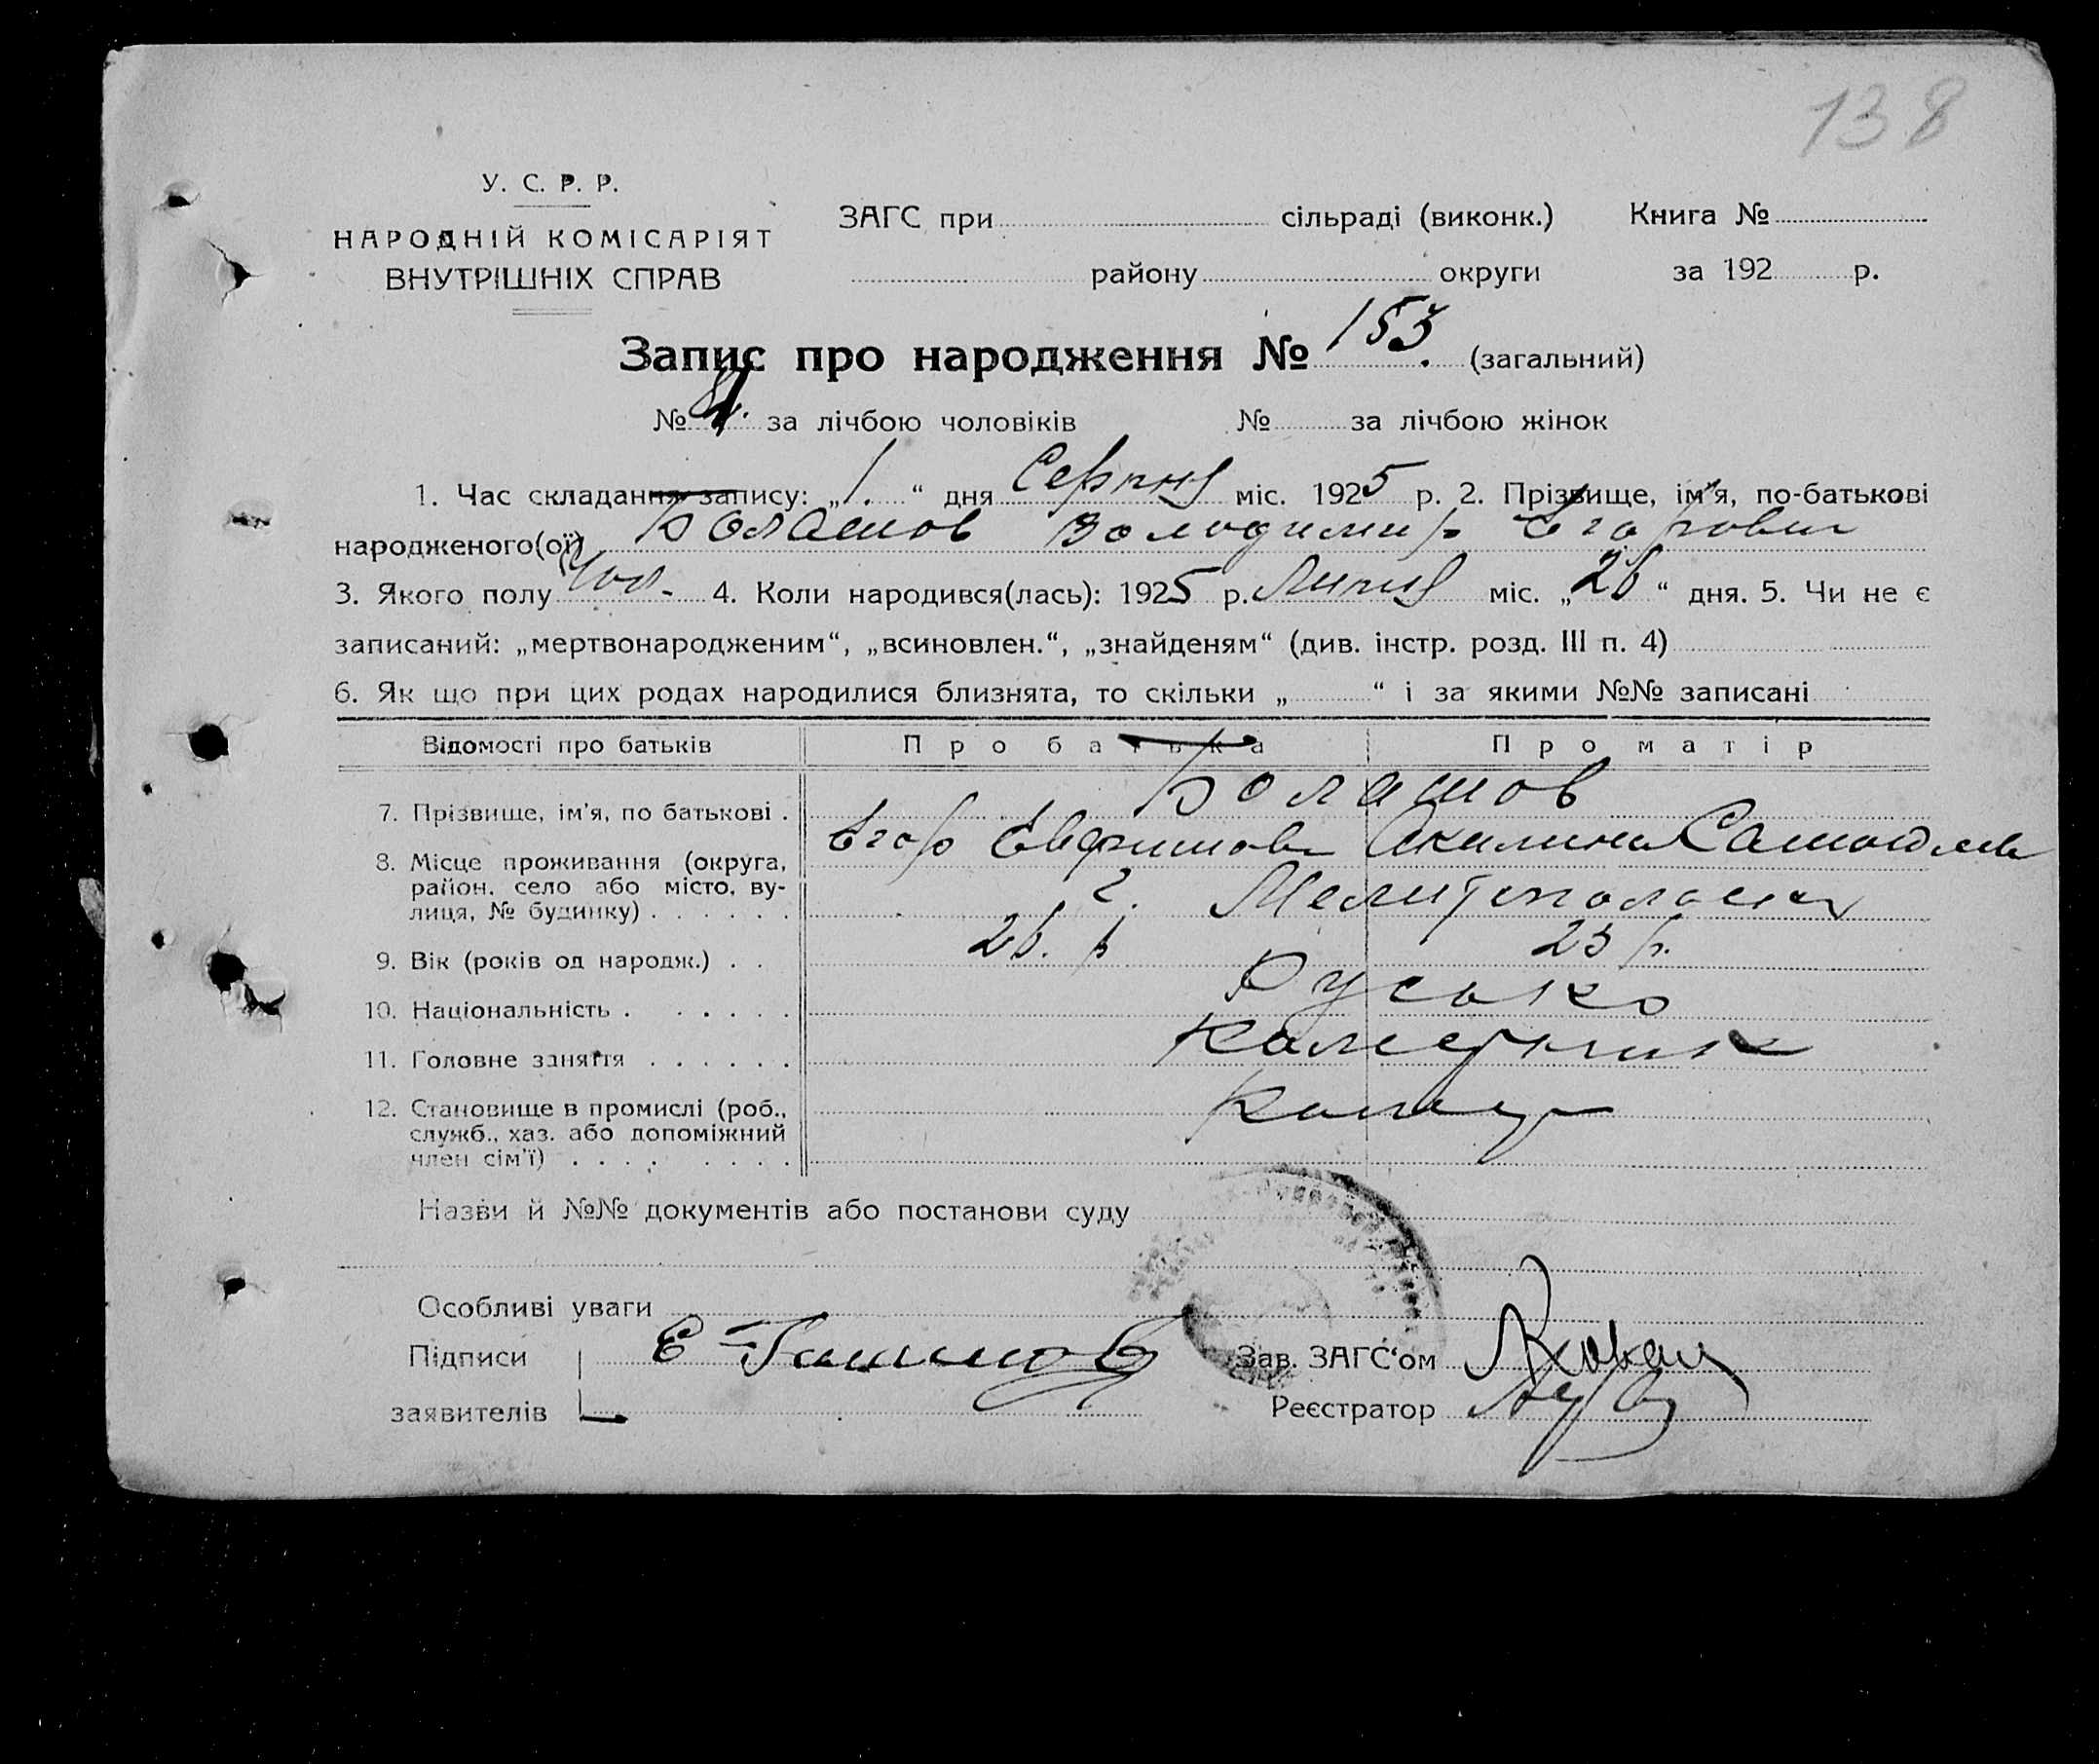 138
У. С. Р. Р.
НАРОДНІЙ КОМІСАРІЯТ
ВНУТРІШНІХ СПРАВ
ЗАГС при сільраді (виконк.) Книга №
району округи за 192 р.
Запис про народження № 153 (загальний)
№ за лічбою чоловіків № за лічбою жінок
1. Час складання запису: „1.“ дня Серпня міс. 1925 р. 2. Прізвище, ім'я, по-батькові
народженого(ої) Болашов Володимир Егорович
3. Якого полу чол. 4. Коли народився(лась): 1925 р. Липня міс. „26“ дня. 5. Чи не є
записаний: „мертвонародженим“, „всиновлен.“, „знайденям“ (див. інстр. розд. III п. 4)
6. Як що при цих родах народилися близнята, то скільки „ “ і за якими №№ записані
Відомості про батьків Про батька Про матір
7. Прізвище, ім'я, по батькові . Болашов
Егор Акилина
8. Місце проживання (округа,
район, село або місто, ву-
лиця, № будинку) . . . . . . г.
9. Вік (років од народж.) . . 26. р 23 р.
10. Національність . . . . . . Русько
11. Головне заняття . . . . . .
12. Становище в промислі (роб.,
служб., хаз. або допоміжний
член сім'ї) . . . . . . . .
Назви й №№ документів або постанови суду
Особливі уваги
Підписи Зав. ЗАГС‘ом
заявителів Реєстратор